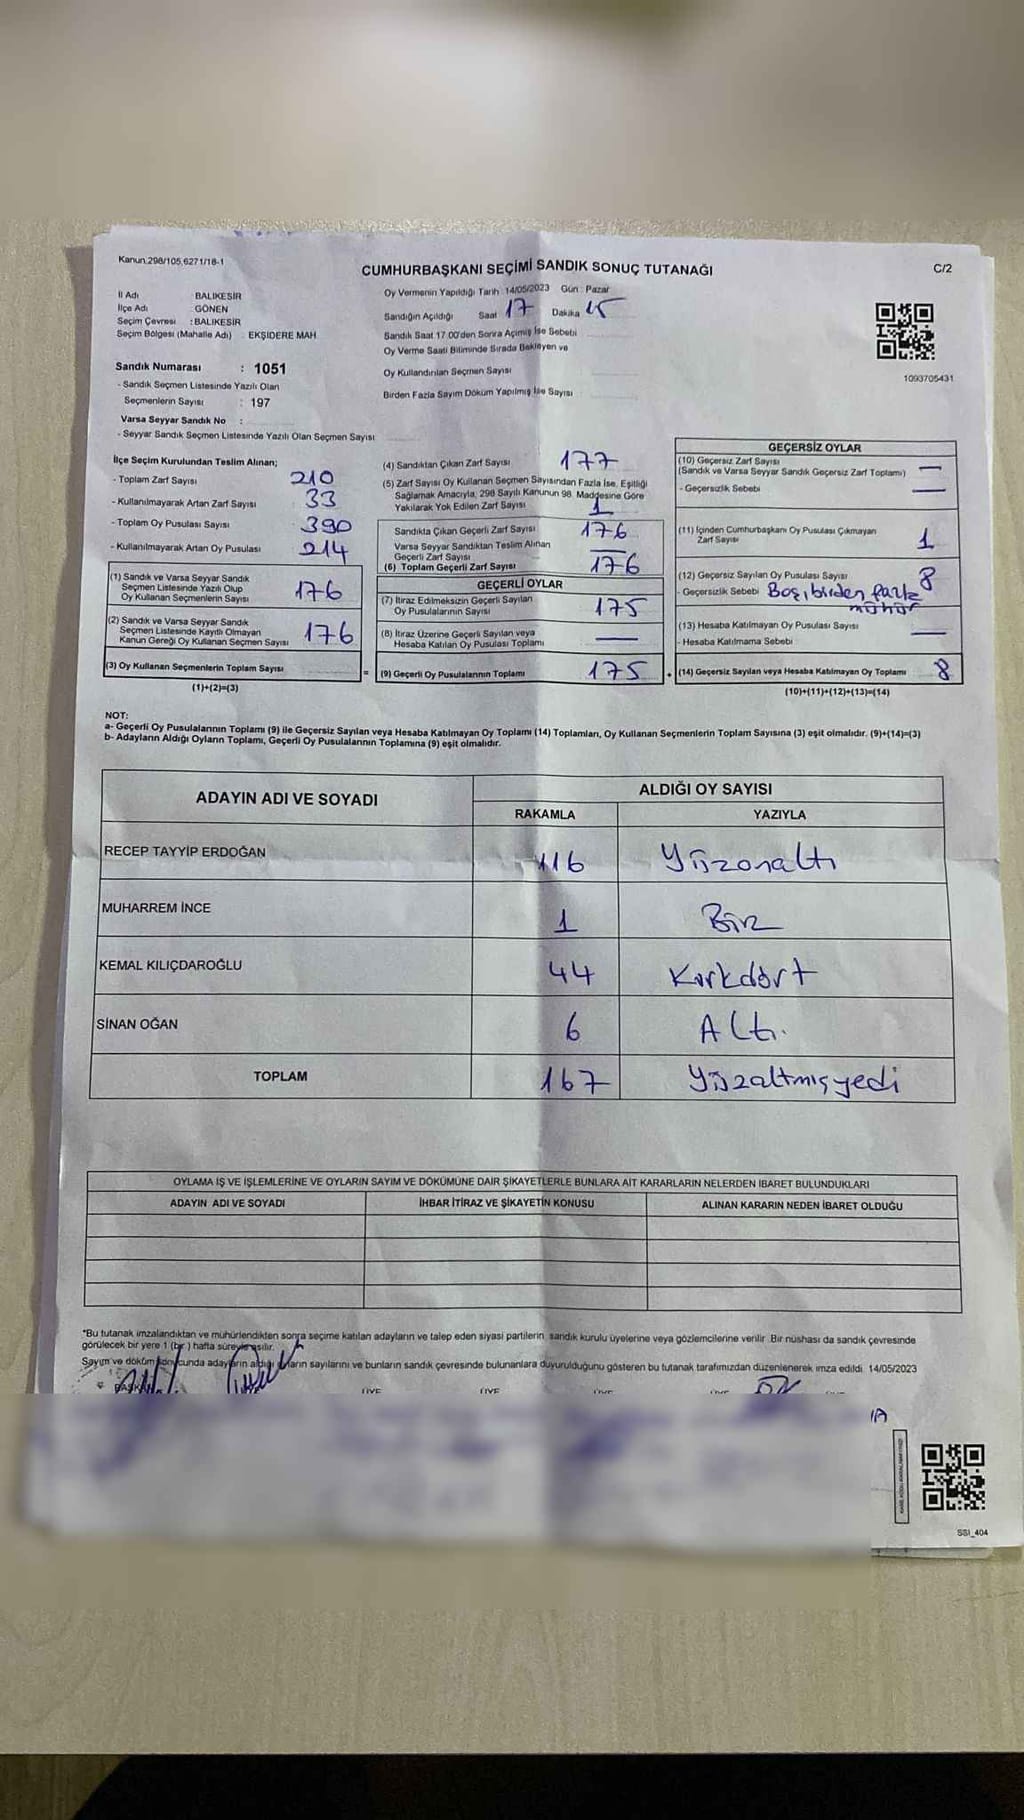 Kanun.298/105,6271/18-1
CUMHURBAŞKANI SEÇİMİ SANDIK SONUÇ TUTANAĞI
C/2
İl Adı BALIKESİR
İlçe Adı GÖNEN
Seçim Çevresi : BALIKESİR
Seçim Bölgesi (Mahalle Adı) EKŞİDERE MAH
Oy Vermenin Yapıldığı Tarih 14/05/2023 Gün : Pazar
Sandığın Açıldığı Saat 17 Dakika 15
Sandık Saat 17.00'den Sonra Açılmış İse Sebebi
Oy Verme Saati Bitiminde Sırada Bekleyen ve
Oy Kullandırılan Seçmen Sayısı
Birden Fazla Sayım Döküm Yapılmış İse Sayısı
1093705431
Sandık Numarası : 1051
- Sandık Seçmen Listesinde Yazılı Olan
Seçmenlerin Sayısı : 197
Varsa Seyyar Sandık No :
- Seyyar Sandık Seçmen Listesinde Yazılı Olan Seçmen Sayısı
İlçe Seçim Kurulundan Teslim Alınan;
- Toplam Zarf Sayısı 210
- Kullanılmayarak Artan Zarf Sayısı 33
- Toplam Oy Pusulası Sayısı 390
- Kullanılmayarak Artan Oy Pusulası 214
(1) Sandık ve Varsa Seyyar Sandık
Seçmen Listesinde Yazılı Olup
Oy Kullanan Seçmenlerin Sayısı 176
(2) Sandık ve Varsa Seyyar Sandık
Seçmen Listesinde Kayıtlı Olmayan
Kanun Gereği Oy Kullanan Seçmen Sayısı 176
(3) Oy Kullanan Seçmenlerin Toplam Sayısı =
(1)+(2)=(3)
(4) Sandıktan Çıkan Zarf Sayısı 177
(5) Zarf Sayısı Oy Kullanan Seçmen Sayısından Fazla İse, Eşitliği
Sağlamak Amacıyla, 298 Sayılı Kanunun 98. Maddesine Göre
Yakılarak Yok Edilen Zarf Sayısı 1
Sandıkta Çıkan Geçerli Zarf Sayısı 176
Varsa Seyyar Sandıktan Teslim Alınan
Geçerli Zarf Sayısı —
(6) Toplam Geçerli Zarf Sayısı 176
GEÇERLİ OYLAR
(7) İtiraz Edilmeksizin Geçerli Sayılan
Oy Pusulalarının Sayısı 175
(8) İtiraz Üzerine Geçerli Sayılan veya
Hesaba Katılan Oy Pusulası Toplamı —
(9) Geçerli Oy Pusulalarının Toplamı 175 +
GEÇERSİZ OYLAR
(10) Geçersiz Zarf Sayısı
(Sandık ve Varsa Seyyar Sandık Geçersiz Zarf Toplamı) —
- Geçersizlik Sebebi —
(11) İçinden Cumhurbaşkanı Oy Pusulası Çıkmayan
Zarf Sayısı 1
(12) Geçersiz Sayılan Oy Pusulası Sayısı 8
- Geçersizlik Sebebi Boş, birden fazla
mühür
(13) Hesaba Katılmayan Oy Pusulası Sayısı —
- Hesaba Katılmama Sebebi
(14) Geçersiz Sayılan veya Hesaba Katılmayan Oy Toplamı 8
(10)+(11)+(12)+(13)=(14)
NOT:
a- Geçerli Oy Pusulalarının Toplamı (9) ile Geçersiz Sayılan veya Hesaba Katılmayan Oy Toplamı (14) Toplamları, Oy Kullanan Seçmenlerin Toplam Sayısına (3) eşit olmalıdır. (9)+(14)=(3)
b- Adayların Aldığı Oyların Toplamı, Geçerli Oy Pusulalarının Toplamına (9) eşit olmalıdır.
ADAYIN ADI VE SOYADI
ALDIĞI OY SAYISI
RAKAMLA YAZIYLA
RECEP TAYYİP ERDOĞAN 116 Yüzonaltı
MUHARREM İNCE 1 Bir
KEMAL KILIÇDAROĞLU 44 Kırkdört
SİNAN OĞAN 6 Altı.
TOPLAM 167 Yüzaltmışyedi
OYLAMA İŞ VE İŞLEMLERİNE VE OYLARIN SAYIM VE DÖKÜMÜNE DAİR ŞİKAYETLERLE BUNLARA AİT KARARLARIN NELERDEN İBARET BULUNDUKLARI
ADAYIN ADI VE SOYADI İHBAR İTİRAZ VE ŞİKAYETİN KONUSU ALINAN KARARIN NEDEN İBARET OLDUĞU
*Bu tutanak imzalandıktan ve mühürlendikten sonra seçime katılan adayların ve talep eden siyasi partilerin sandık kurulu üyelerine veya gözlemcilerine verilir. Bir nüshası da sandık çevresinde
görülecek bir yere 1 (bir) hafta süreyle asılır.
Sayım ve döküm sonucunda adayların aldığı oyların sayılarını ve bunların sandık çevresinde bulunanlara duyurulduğunu gösteren bu tutanak tarafımızdan düzenlenerek imza edildi. 14/05/2023
BAŞKAN ÜYE ÜYE ÜYE ÜYE ÜYE
SSI_404